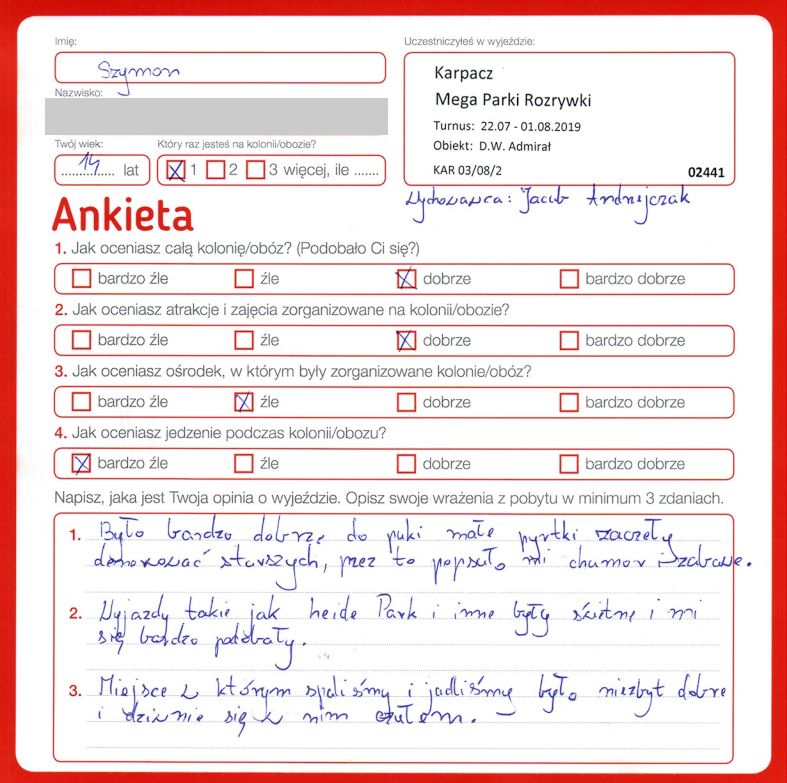 Imię:
Szymon
Nazwisko:
Twój wiek:
14 lat
Który raz jesteś na kolonii/obozie?
1 2 3 więcej, ile .......
Uczestniczyłeś w wyjeździe:
Karpacz
Mega Parki Rozrywki
Turnus: 22.07 - 01.08.2019
Obiekt: D.W. Admirał
KAR 03/08/2 02441
Wychowawca: Jacub Andrzejczak
Ankieta
1. Jak oceniasz całą kolonię/obóz? (Podobało Ci się?)
bardzo źle źle dobrze bardzo dobrze
2. Jak oceniasz atrakcje i zajęcia zorganizowane na kolonii/obozie?
bardzo źle źle dobrze bardzo dobrze
3. Jak oceniasz ośrodek, w którym były zorganizowane kolonie/obóz?
bardzo źle źle dobrze bardzo dobrze
4. Jak oceniasz jedzenie podczas kolonii/obozu?
bardzo źle źle dobrze bardzo dobrze
Napisz, jaka jest Twoja opinia o wyjeździe. Opisz swoje wrażenia z pobytu w minimum 3 zdaniach.
1. Było bardzo dobrze do puki małe pyrtki zaczęły
starszych, przez to popsuło mi chumor i zabawe.
2. Wyjazdy takie jak heide Park i inne były świetne i mi
się bardzo podobały.
3. Miejsce w którym spaliśmy i jadliśmy było niezbyt dobre
i dziwnie się w nim czułem.